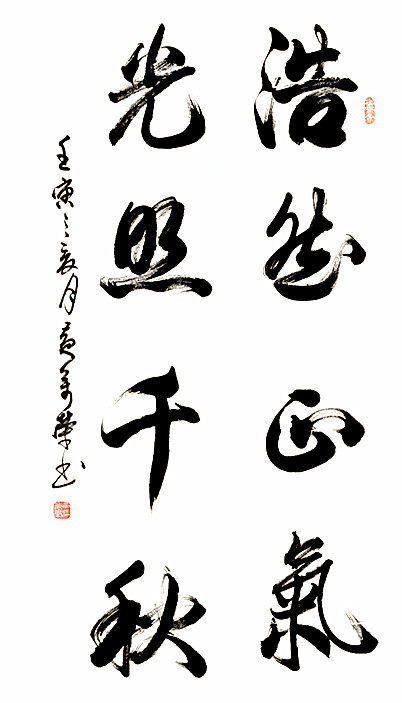 浩然正氣
光照千秋
壬寅之夏月黄榮书